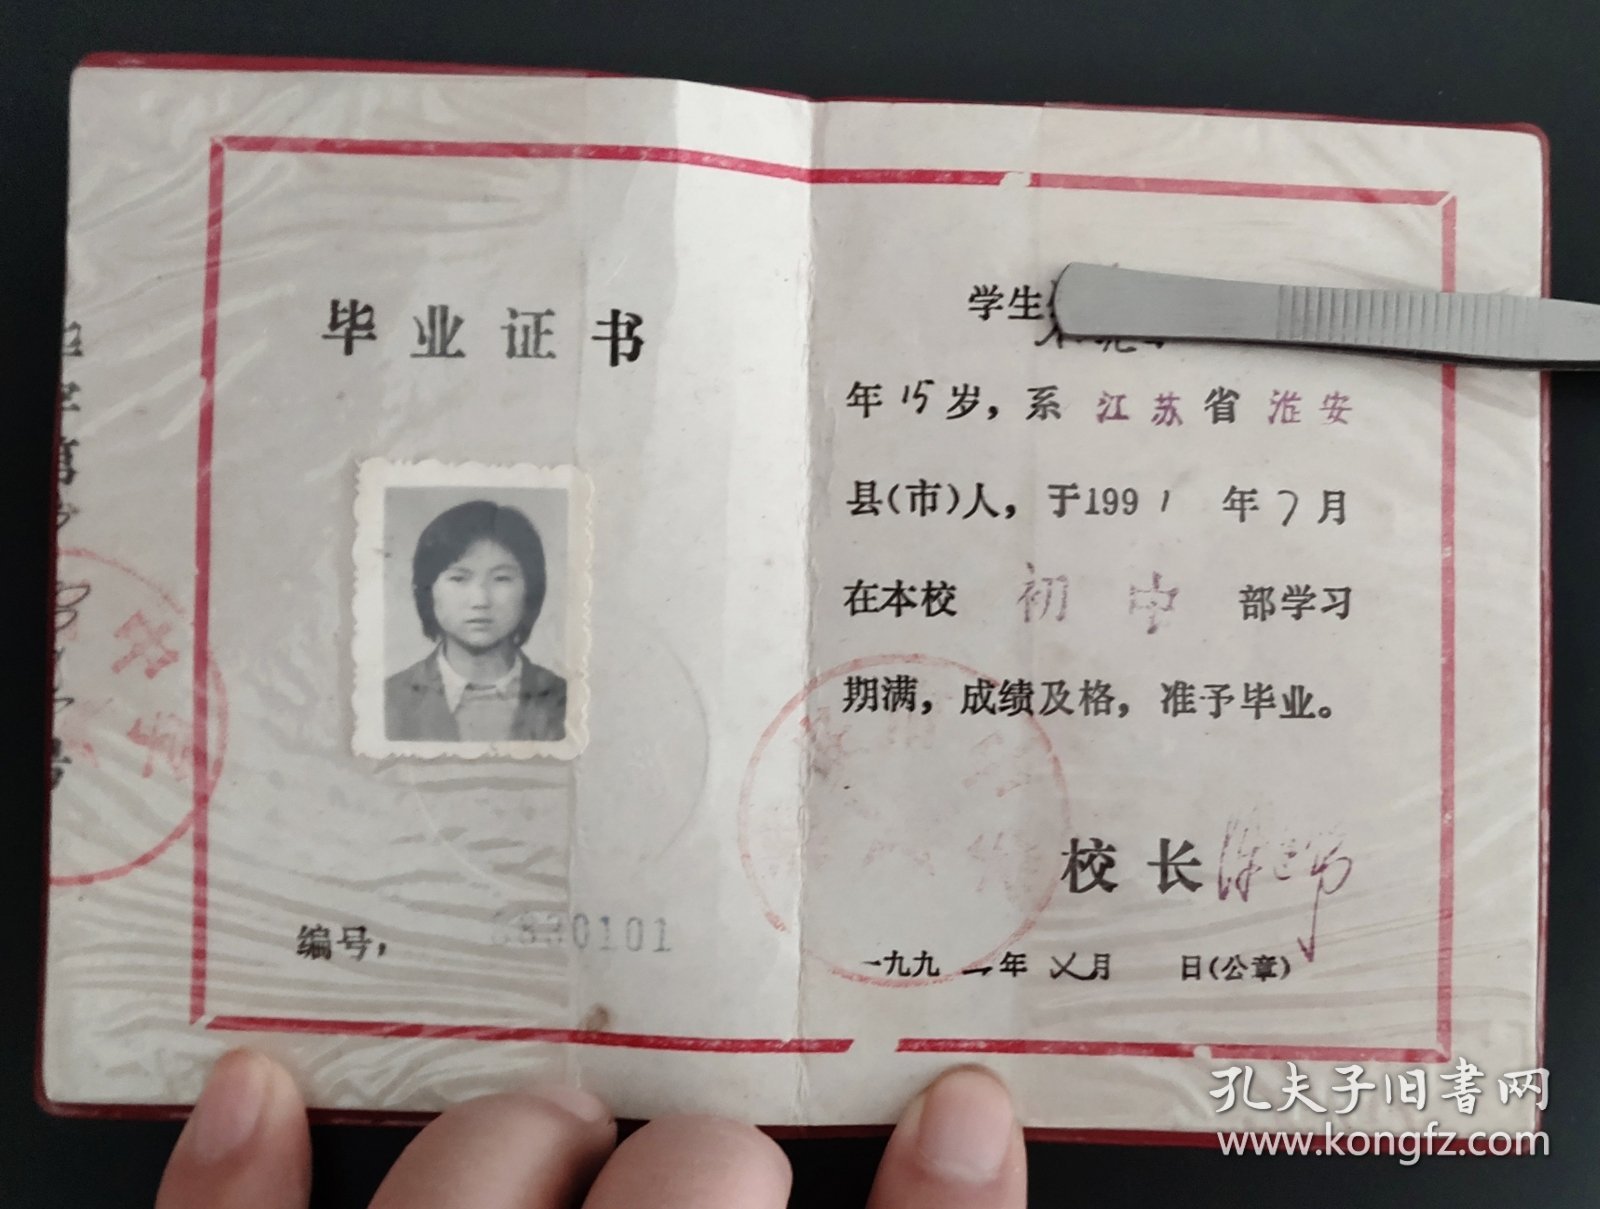 毕业证书
编号，
0101
学生
年15岁，系江苏省淮安
县(市)人，于1991年7月
在本校初中部学习
期满，成绩及格，准予毕业。
校长
一九九一年 月 日(公章)
孔夫子旧书网
www.kongfz.com